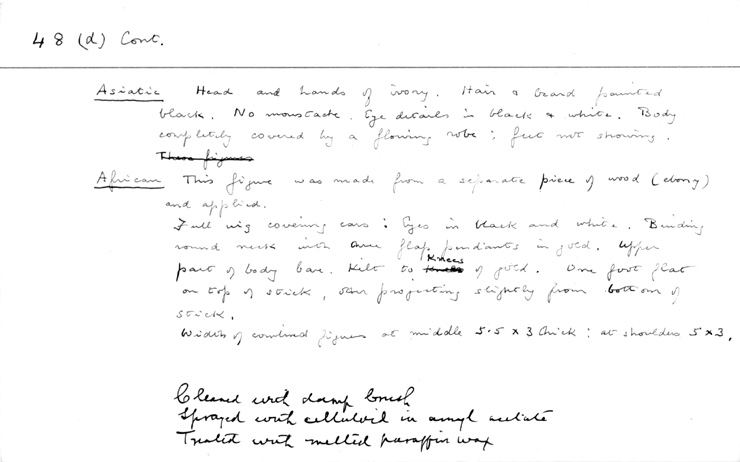 48 (d) Cont.
Asiatic Head and hands of ivory. Hair & beard painted
black. No moustache. Eye details in black & white. Body
completely covered by a flowing robe; feet not showing.
These figures
African This figure was made from a separate piece of wood (ebony)
and applied.
Full wig covering ears: Eyes in black and white. Binding
round neck with three flap pendants in gold. Upper
part of body bare. Kilt to knees of gold. One foot flat
on top of stick, other projecting slightly from bottom of
stick.
Width of combined figures at middle 5.5 x 3 thick: at shoulders 5 x 3.
Cleaned with damp brush
Sprayed with celluloid in amyl acetate
Treated with melted paraffin wax